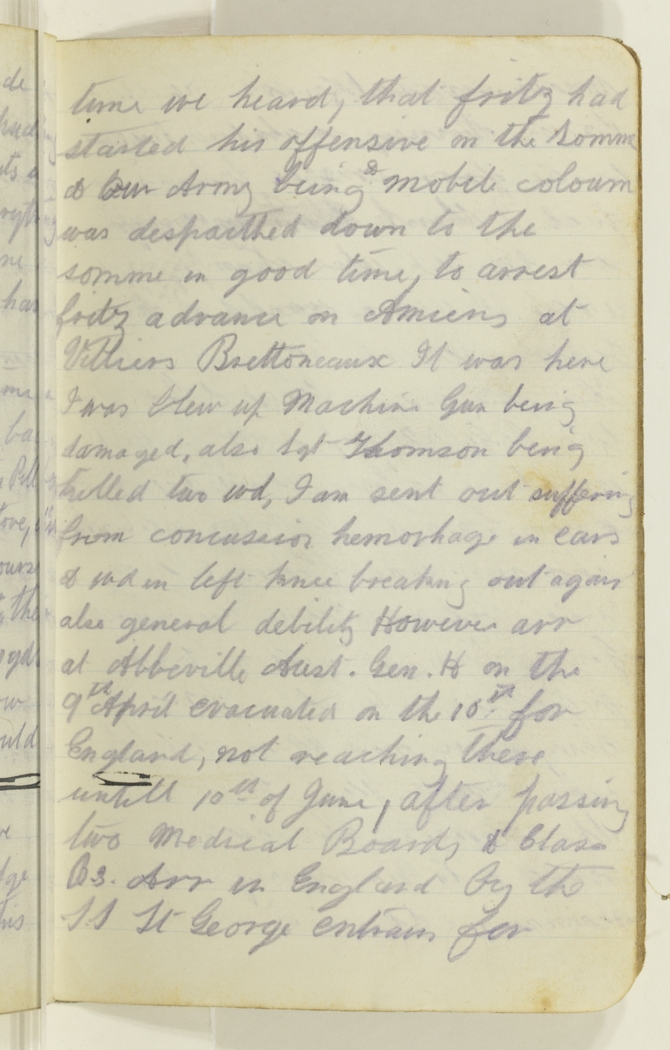 time we heard, that fritz had
started his offensive on the Somme
& our Army being a mobile coloum
was despatthed down to the
somme in good time, to arrest
fritz advance on Amiens at
Villiers Brettoneaux It was here
I was blew up Machine Gun being
damaged, also Sgt Thomson being
killed two wd, I am sent out suffering
from concussion hemorhage in ears
& wd in left knee breaking out again
also general debility However arr
at Abbeville Aust. Gen. H on the
9th April evacuated on the 10th for
England, not reaching there
untill 10th of June, after passing
two Medical Boards & Class
B3. Arr in England by the
SS St George entrain for